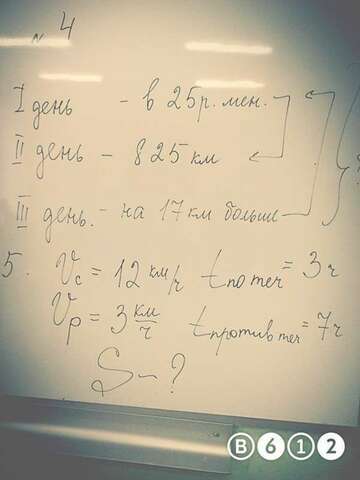 № 4
I день - в 25 р. мен.
II день - 825 км
III день. - на 17 км больше
5. Vс = 12 км/ч tпо теч = 3ч
Vр = 3 км/ч tпротив теч = 7ч
S - ?
B612